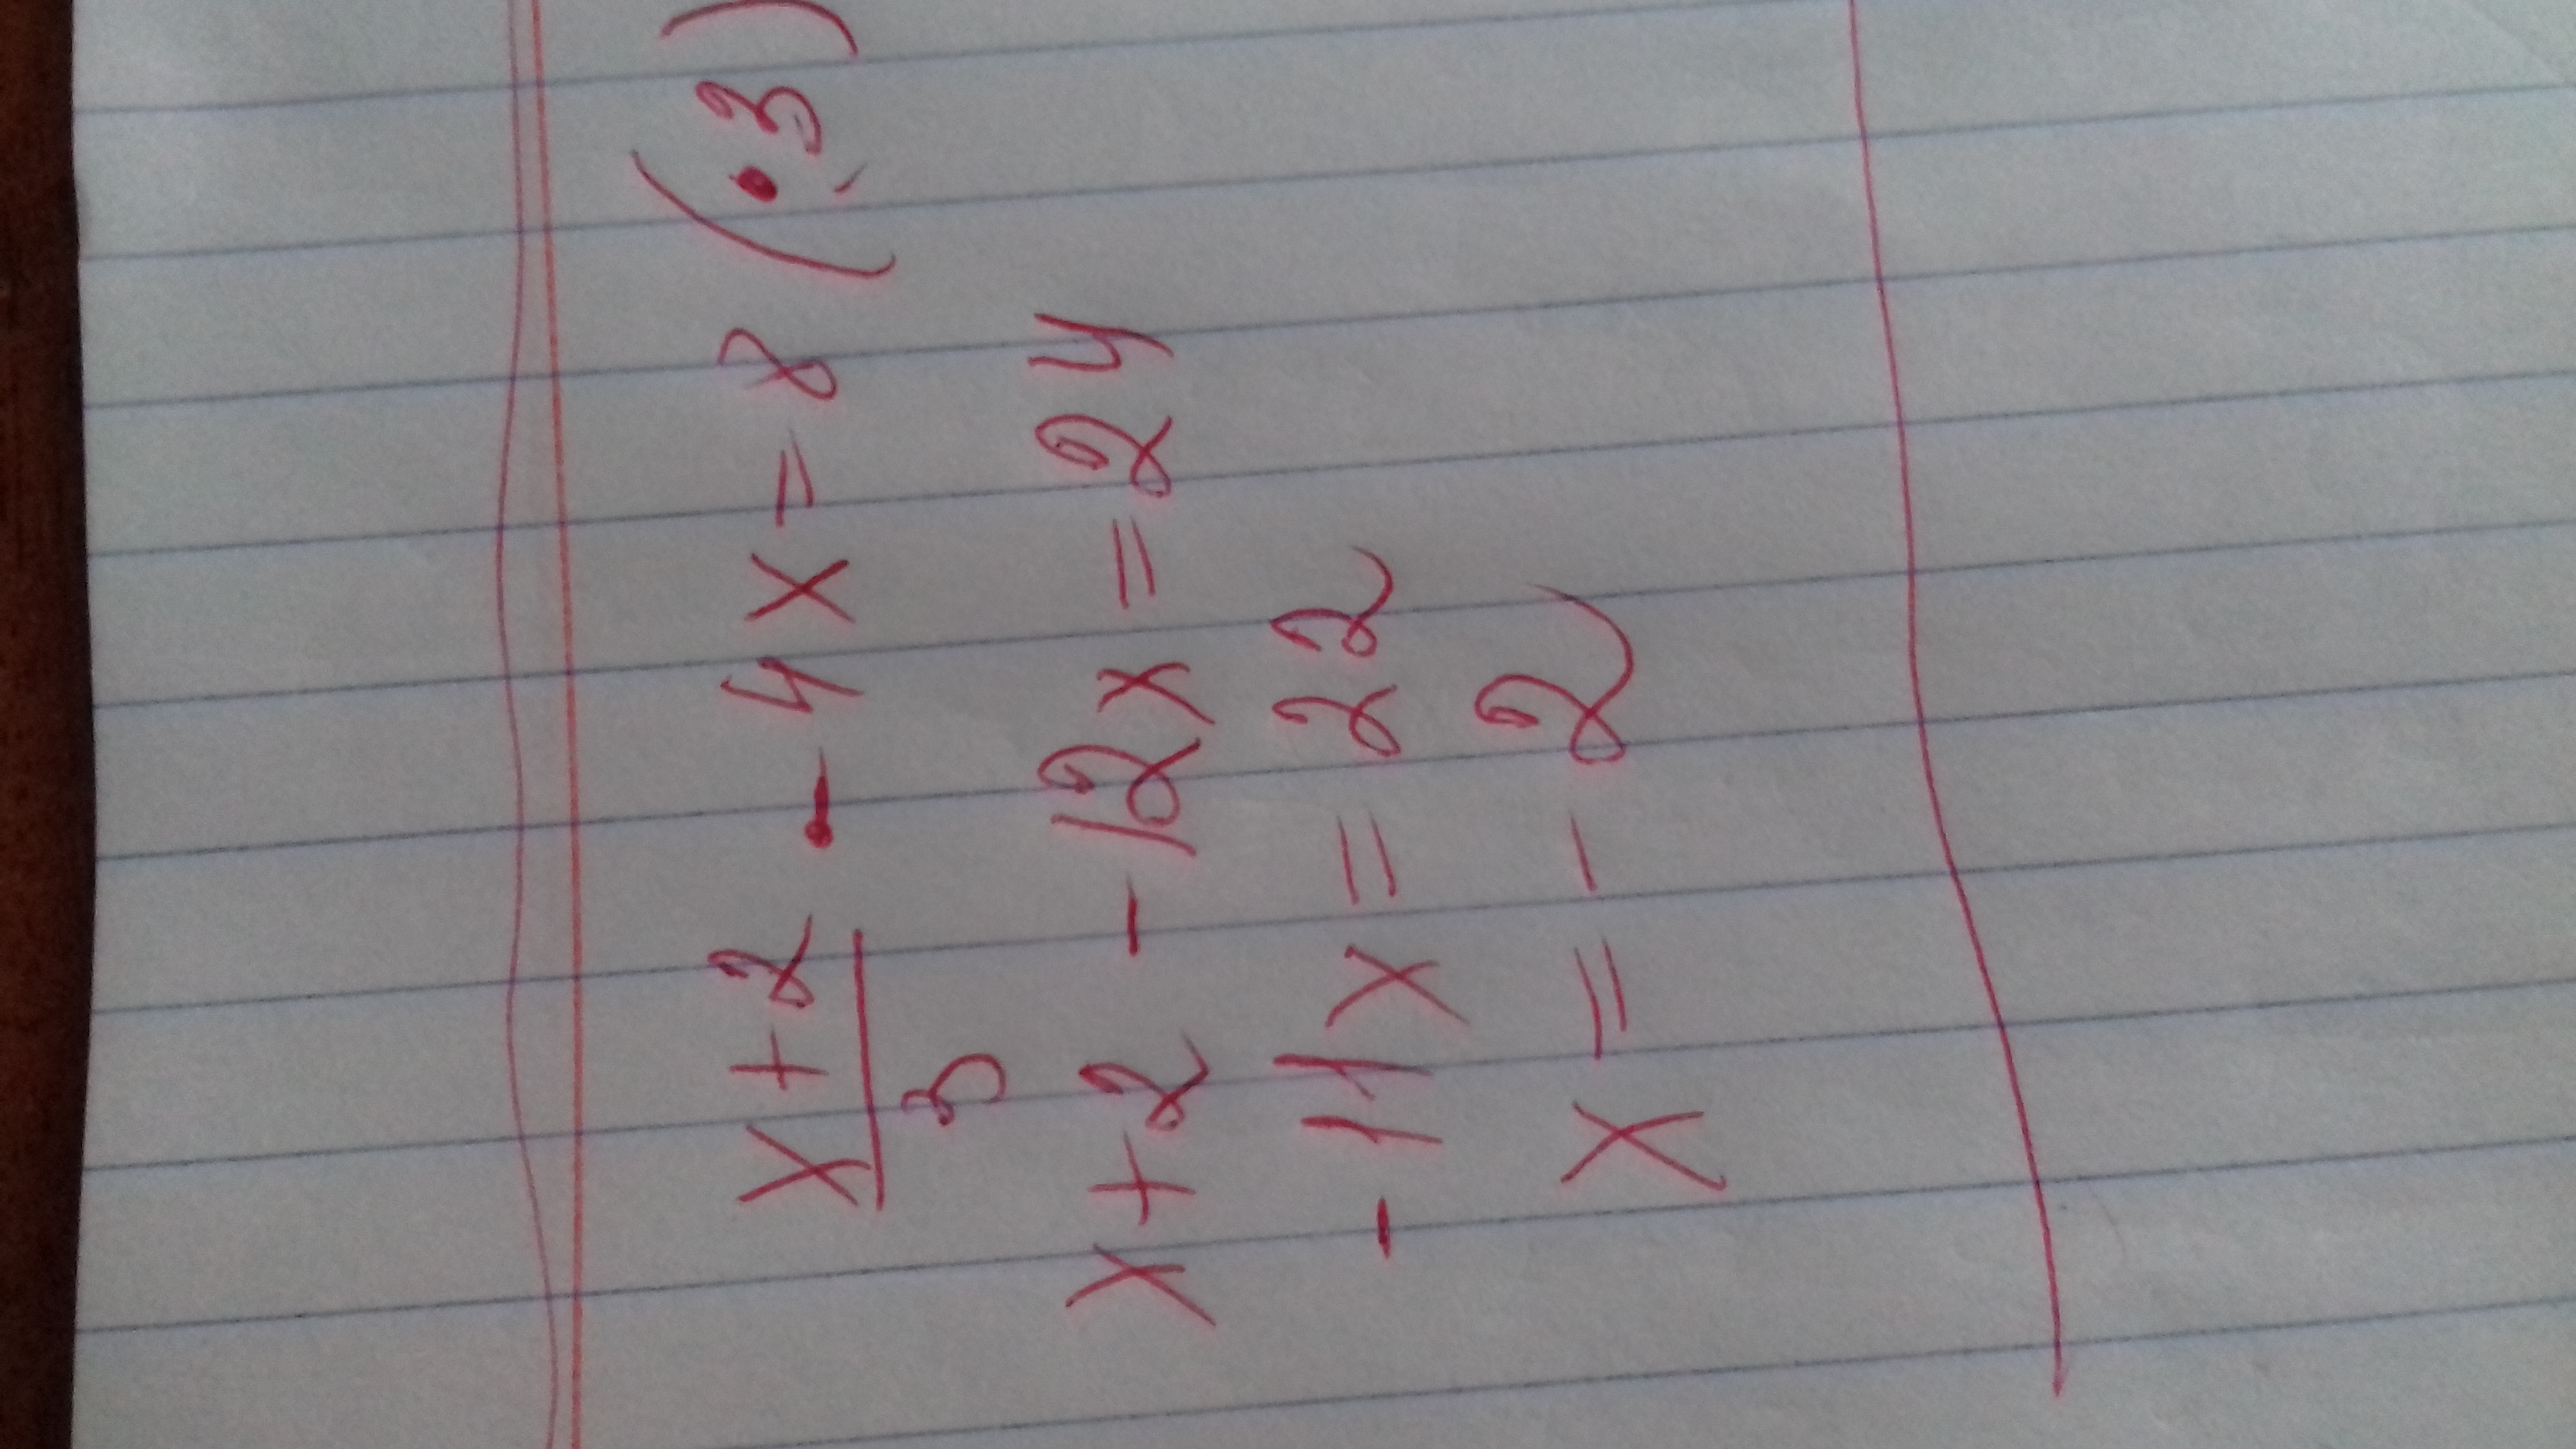 x + 2 - 4x = 8 (·3)
3
x + 2 - 12x = 24
- 11x = 22
x = - 2